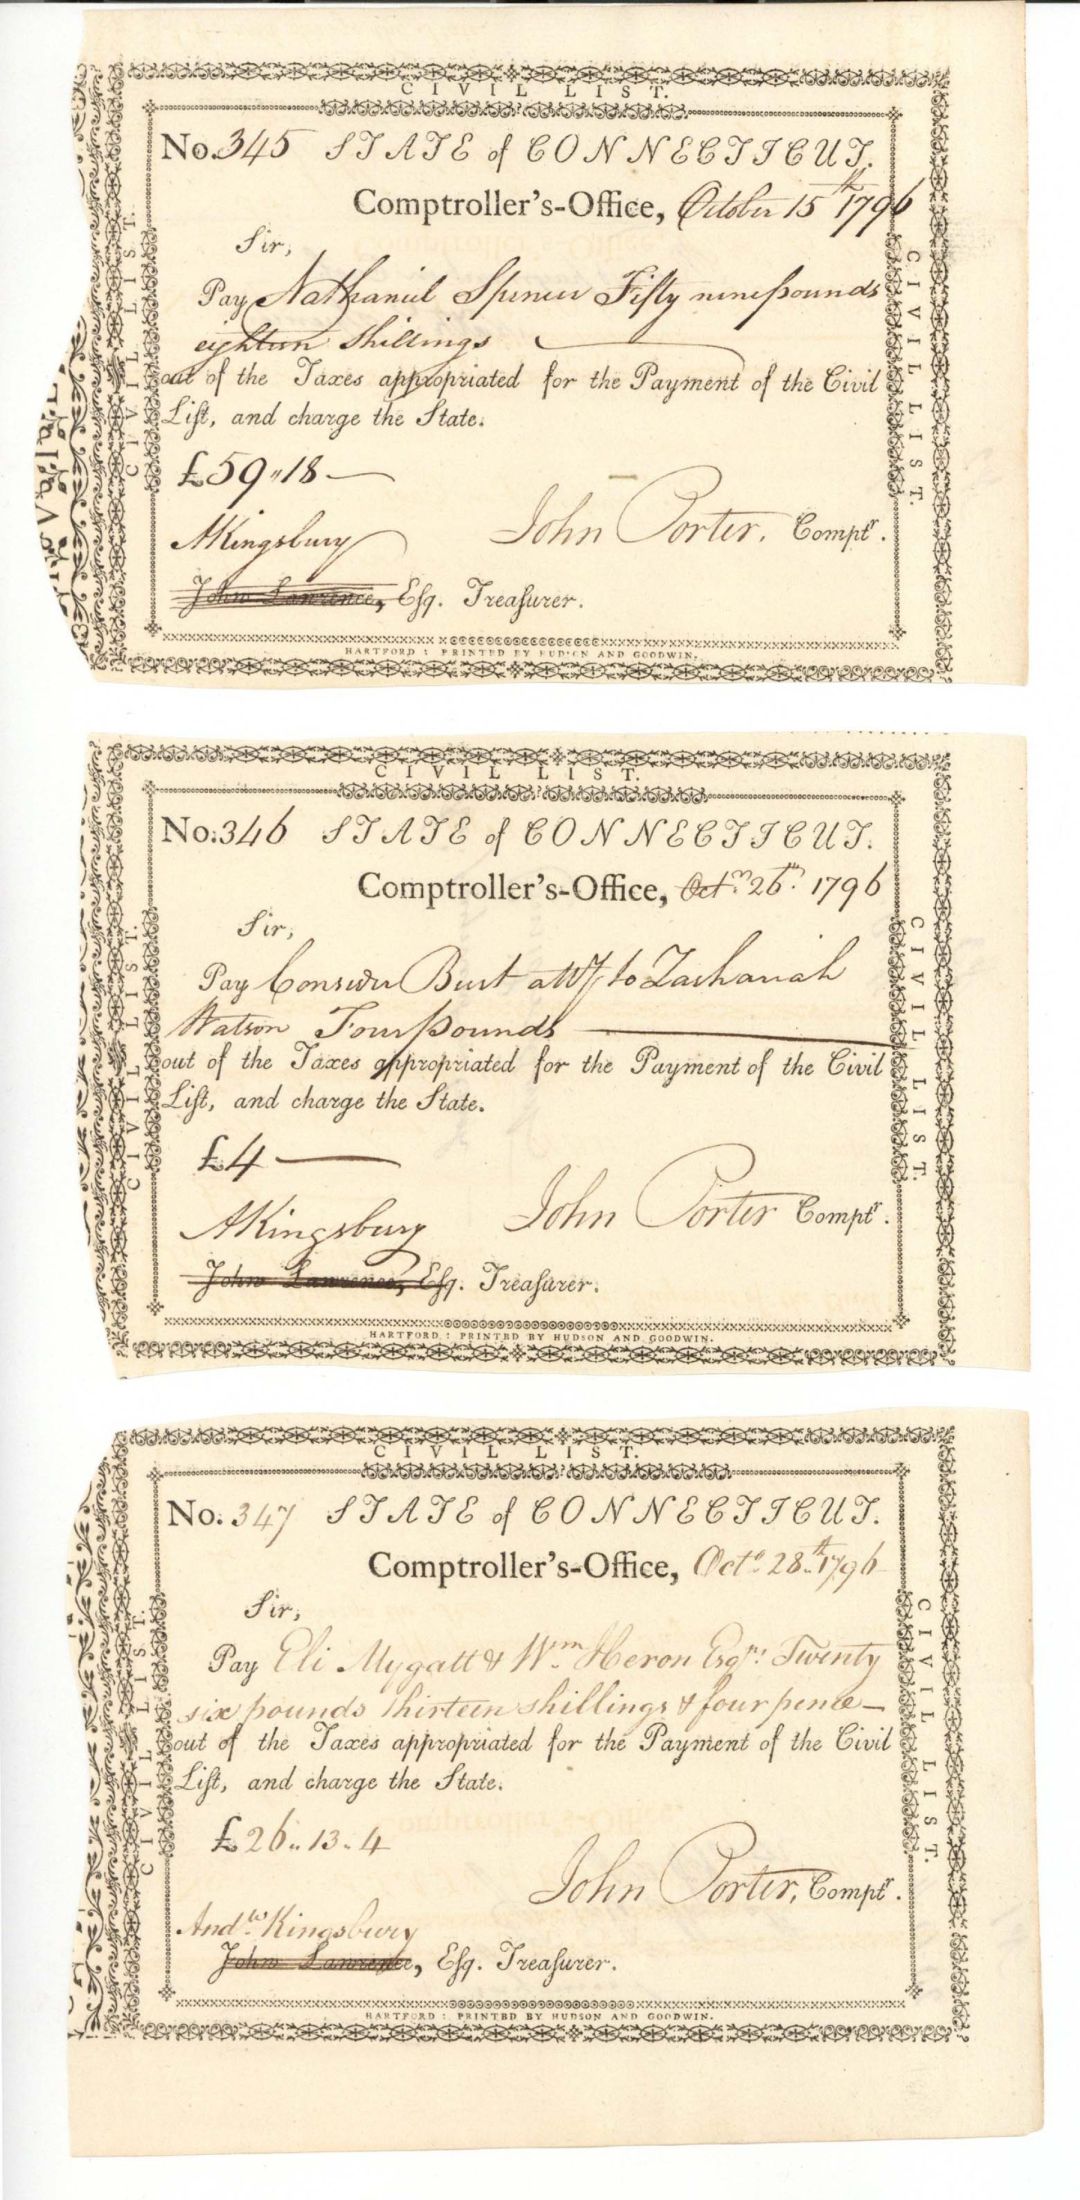 CIVIL LIST.
No. 345 STATE of CONNECTICUT.
Comptroller's-Office, October 15th 1796
Sir,
Pay Nathaniel Spencer Fifty nine pounds
eighteen shillings
out of the Taxes appropriated for the Payment of the Civil
List, and charge the State.
£59,,18
AKingsbury
John Porter, Comptr.
John Lawrence, Esq. Treasurer.
CIVIL LIST.
CIVIL LIST.
HARTFORD: PRINTED BY HUDSON AND GOODWIN.
CIVIL LIST.
No: 346 STATE of CONNECTICUT.
Comptroller's-Office, 26th 1796
Sir,
Pay Consider Burt atty to Zachariah
Watson Four pounds
out of the Taxes appropriated for the Payment of the Civil
List, and charge the State.
£4
AKingsbury
John Porter Comptr.
John Lawrence, Esq. Treasurer.
CIVIL LIST.
CIVIL LIST.
HARTFORD: PRINTED BY HUDSON AND GOODWIN.
CIVIL LIST.
No. 347 STATE of CONNECTICUT.
Comptroller's-Office, Octo 28th 1796
Sir,
Pay Eli Mygatt & Wm Heron Esqrs Twenty
six pounds thirteen shillings & four pence
out of the Taxes appropriated for the Payment of the Civil
List, and charge the State.
£26,,13,,4
Andw Kingsbury
John Porter, Comptr.
John Lawrence, Esq. Treasurer.
CIVIL LIST.
CIVIL LIST.
HARTFORD: PRINTED BY HUDSON AND GOODWIN.